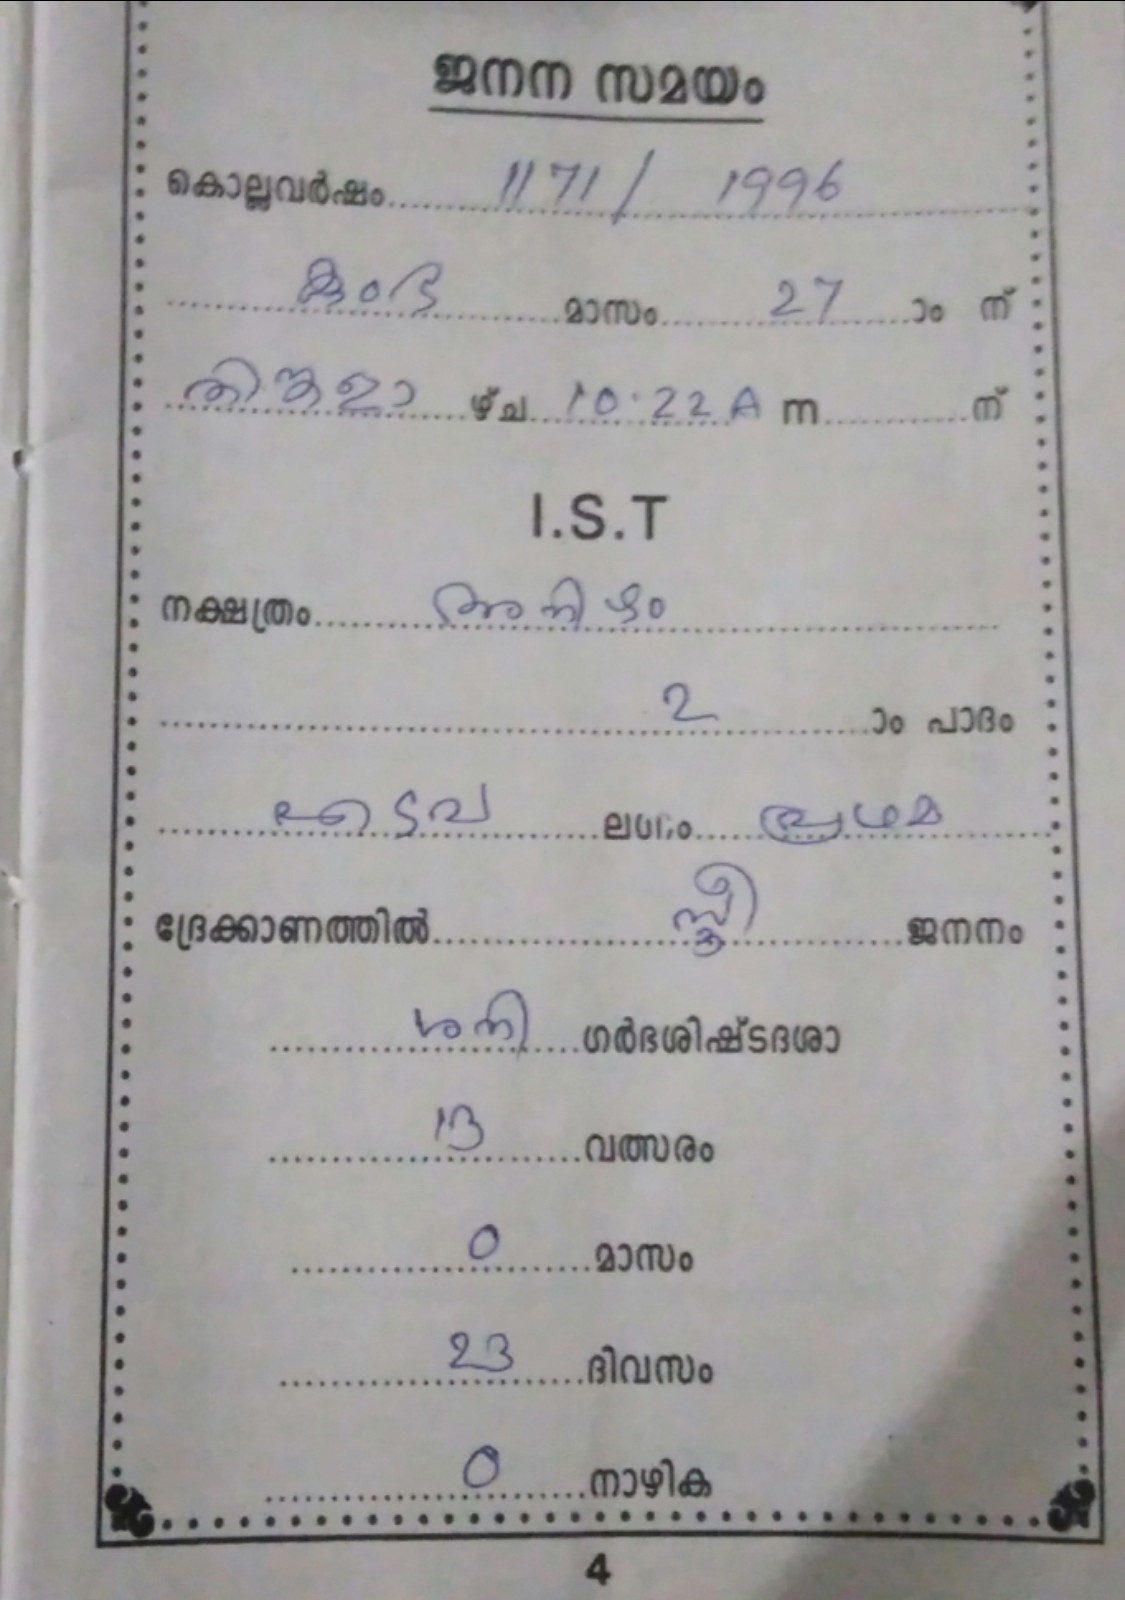 ജനന സമയം
കൊല്ലവർഷം......1171 / 1996
കുംഭ മാസം 27 ാം ന്
തിങ്കളാ ഴ്ച 10.22 A ന ന്
I.S.T
നക്ഷത്രം അനിഴം
2 ാം പാദം
എടവ ലഗ്നം പ്രഥമ
ദ്രേക്കാണത്തിൽ സ്ത്രീ ജനനം
ശനി ഗർഭശിഷ്ടദശാ
13 വത്സരം
0 മാസം
23 ദിവസം
0 നാഴിക
4